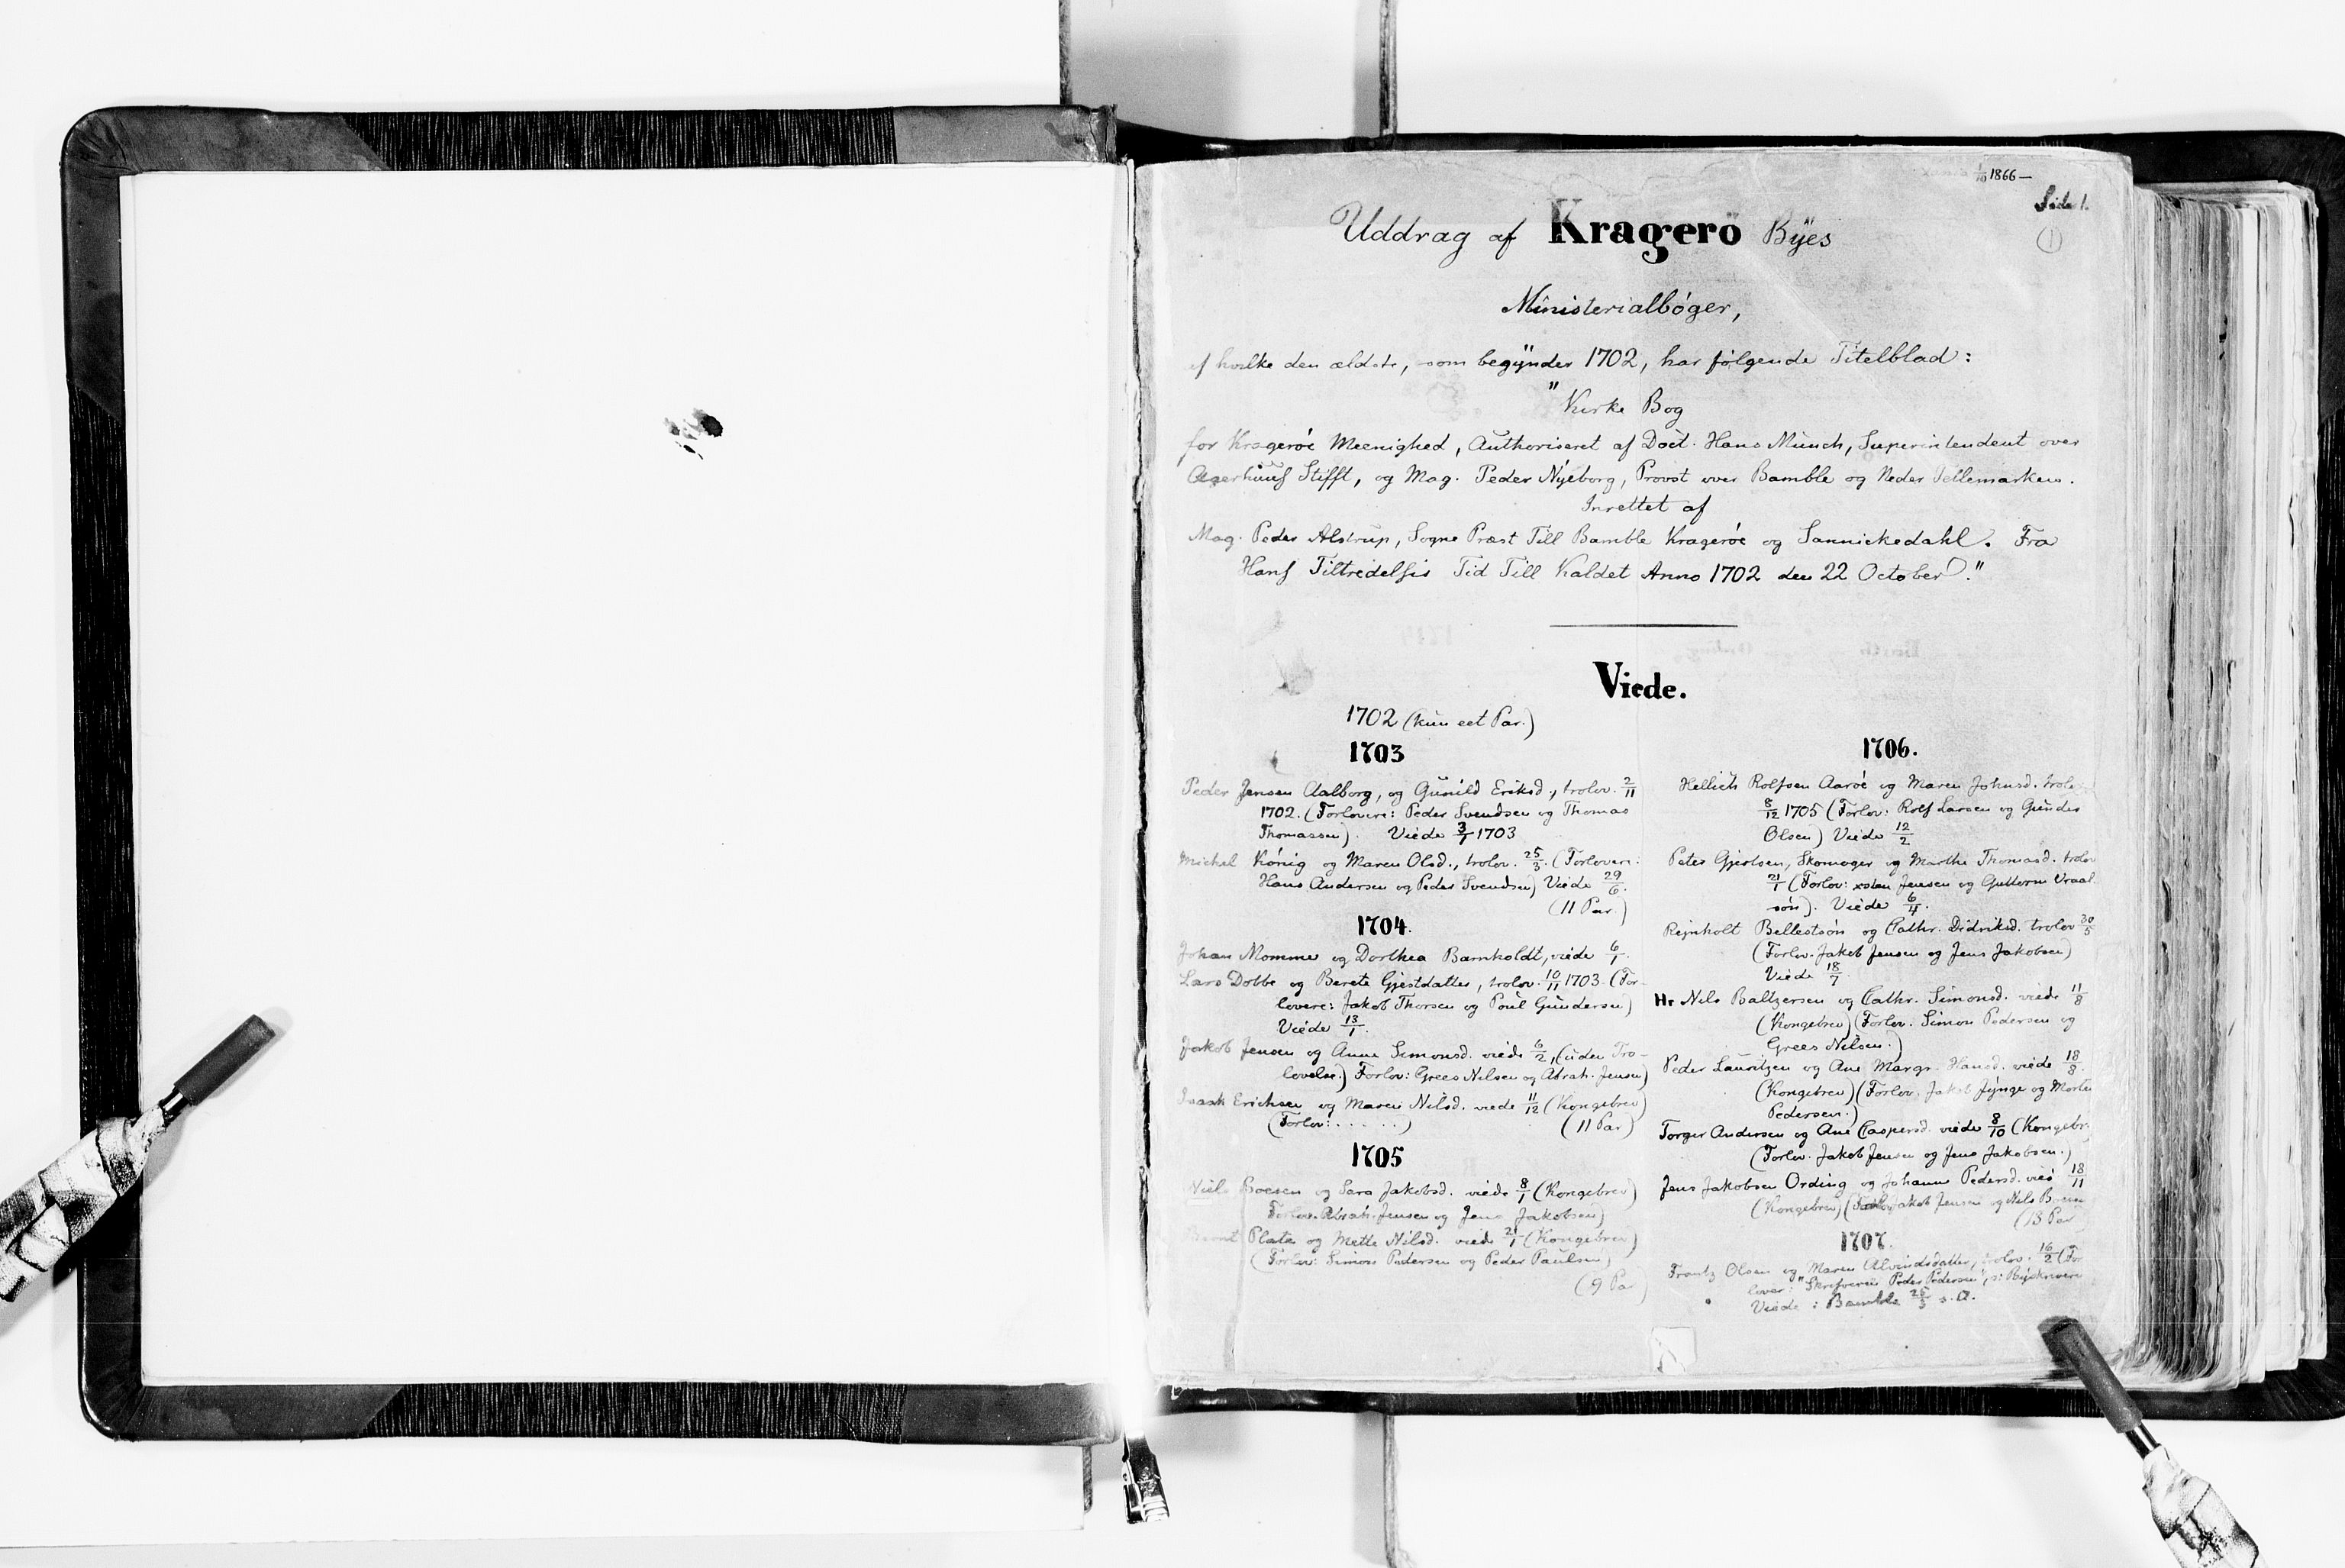 1/10 1866 —
Side 1.
1
Uddrag af Kragerö Byes
Ministerialbóger,
af hvilke den ældste, som begynder 1702, har fólgende Titelblad:
"Kirke Bog
for Krageróe Meenighed, Authoriseret af Doct. Hans Münch, Superintendent over
Agerhuus Stifft, og Mag. Peder Nyeborg, Provst over Bamble og Neder Tellemarken.
Inrettet af
Mag. Peder Alstrup, Sogne Præst Till Bamble Krageróe og Sannickedahl. Fra
Hans Tiltredelsis Tid Till Kaldet Anno 1702 den 22 October."
Viede.
1702 (kun eet Par.)
1703
Peder Jensen Aalborg, og Gunild Eriksd., trolov. 2/11
1702. (Forlovere: Peder Svendsen og Thomas
Thomassen). Viede 3/1 1703
Michel König og Maren Olsd., trolov. 25/3. (Forlovere:
Hans Andersen og Peder Svendsen) Viede 29/6.
(11 Par.)
1704.
Johan Momme og Dorthea Barnholdt, viede 6/1.
Lars Dobbe og Berete Gjestdatter, trolov. 10/11 1703. (For-
lovere: Jakob Thorsen og Poul Gundersen)
Viede 13/1.
Jakob Jensen og Anne Simonsd. viede 6/2, (uden Tro-
lovelse.) Forlov: Grees Nilsen og Abrah. Jensen)
Isaak Erichsen og Maren Nilsd. viede 11/12 (Kongebrev)
(Forlov: . . . . . .) (11 Par)
1705
Niels Boesen og Sara Jakobsd. viede 8/1 (Kongebrev)
Forlov. Abrah. Jensen og Jens Jakobsen)
Bernt Plate og Mette Nilsd. viede 21/1 (Kongebrev)
(Forlov: Simon Pedersen og Peder Paulsen)
(9 Par)
1706.
Hellich Rolfsen Aaróe og Maren Johnsd. trolov
8/12 1705 (Forlov: Rolf Larsen og Gunder
Olsen) Viede 12/2
Peter Gjertsen, Skomager og Marthe Thomasd. trolov
21/1 (Forlov: xsten Jensen og Guttorm Vraal-
són). Viede 6/4.
Rejnholt Bellestsón og Cathr. Didriksd. trolov 30/5
(Forlov. Jakob Jensen og Jens Jakobsen)
Viede 18/7.
Hr Nils Baltzersen og Cathr. Simonsd. viede 11/8
(Kongebrev) (Forlov. Simon Pedersen og
Grees Nilsen.)
Peder Lauritzen og Ane Margr. Hansd. viede 18/8.
(Kongebrev) (Forlov. Jakob Jynge og Morten
Pedersen.)
Torger Andersen og Ane Caspersd. viede 8/10 (Kongebr.
(Forlov. Jakob Jensen og Jens Jakobsen.)
Jens Jakobsen Ording og Johanne Pedersd. vied 18/11
(Kongebrev) (Forlov Jakob Jensen og Nils Boesen
(13 Par)
1707.
Frantz Olsen og Maren Alvindsdatter, trolov. 16/2 (For
lover: "Skrifveren Peder Pedersen", ɔ: Byskriveren
Viede i Bamble 25/3 s. A.